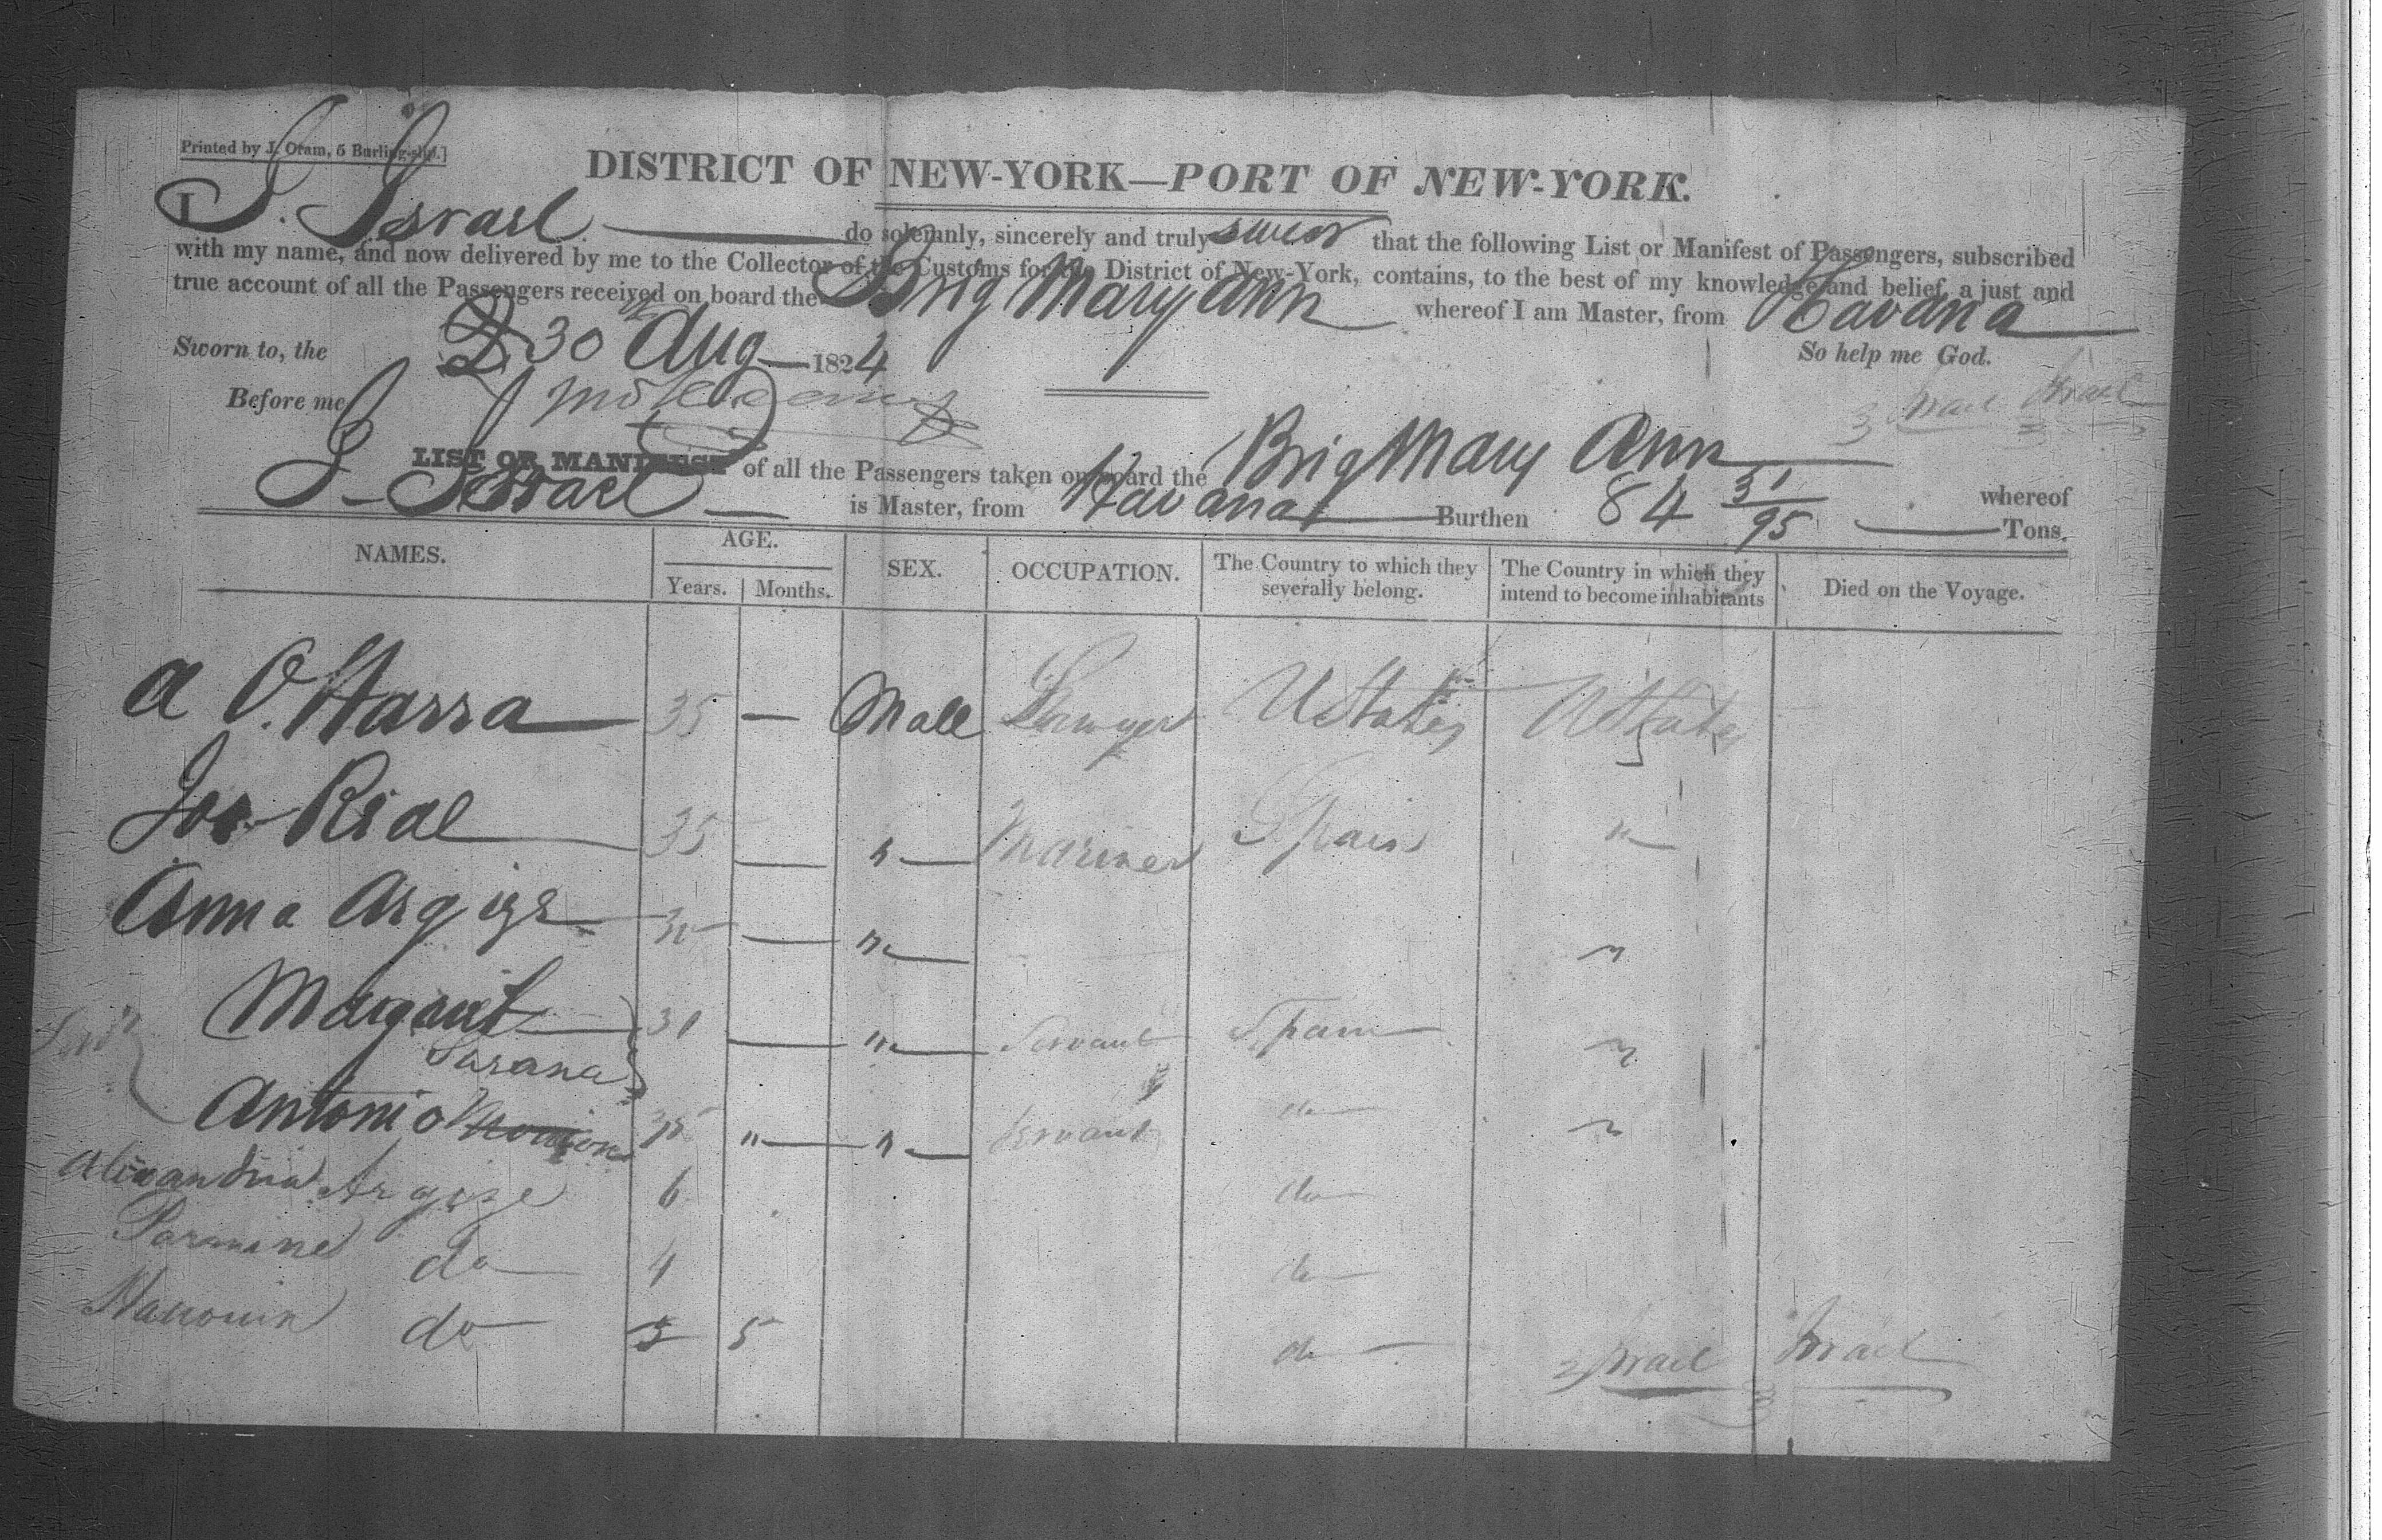 Printed by J. Oram, 5 Burling-slip.]
DISTRICT OF NEW-YORK—PORT OF NEW-YORK.
I J. Israel do solemnly, sincerely and truly swear that the following List or Manifest of Passengers, subscribed
with my name, and now delivered by me to the Collector of the Customs for the District of New-York, contains, to the best of my knowledge and belief, a just and
true account of all the Passengers received on board the Brig Mary Ann whereof I am Master, from Havana
Sworn to, the 30th Aug 1824 So help me God.
Before me,
3 Israel Israel
LIST OR MANIFEST of all the Passengers taken on board the Brig Mary Ann whereof
J. Israel is Master, from Havana Burthen 84 31/95 Tons.
NAMES. AGE. SEX. OCCUPATION. The Country to which they severally belong. The Country in which they intend to become inhabitants Died on the Voyage.
Years. Months.
A O.Harra 35 — Male Lawyer U States U States
Jos Rial 35 — " Mariner Spain "
Anna Argize 30 — " "
Margaret 31 — " Servant Spain "
Sarana
Antonio 35 " " Servant do "
Alexandria Argize 6 do
Parmine do 4 do
do 5 do
Israel Israel